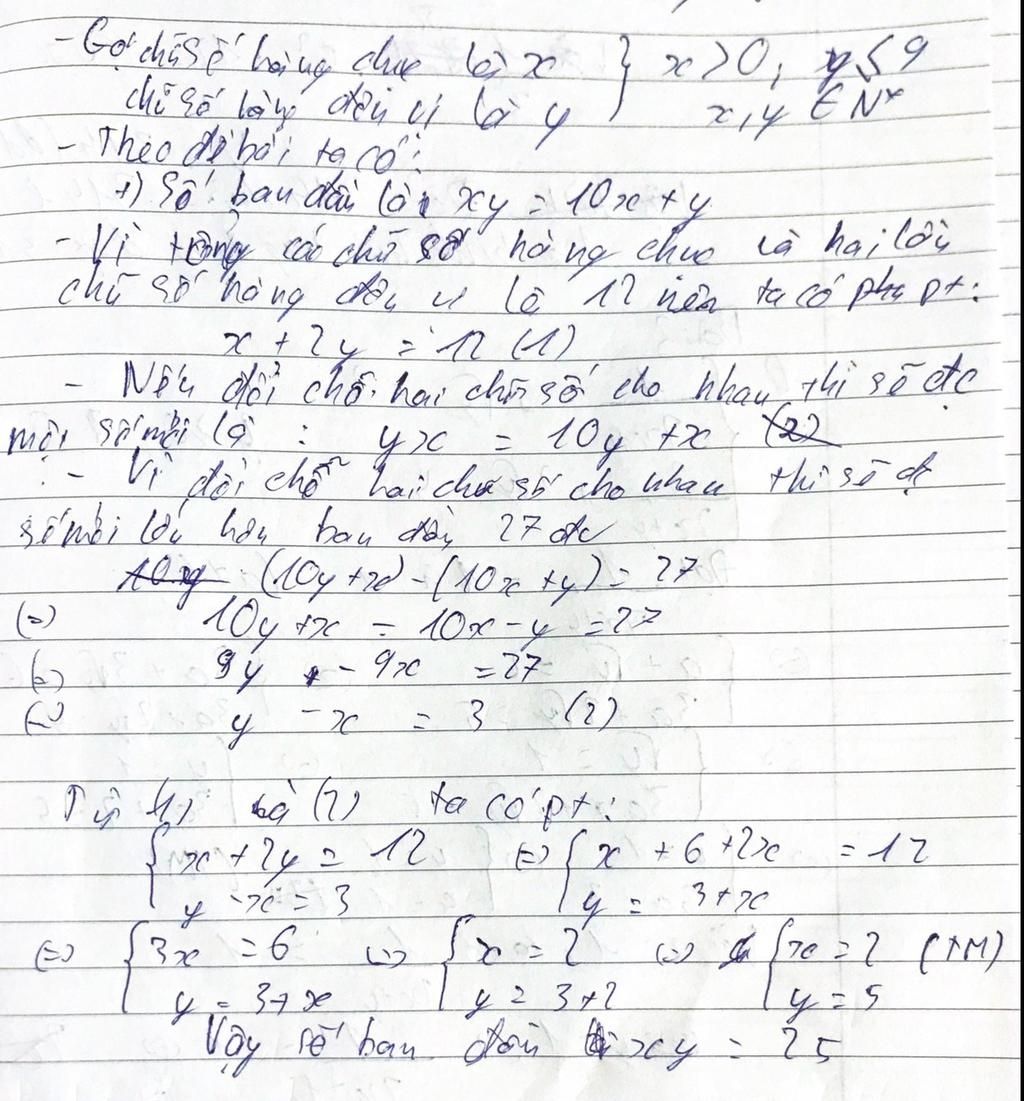 - Gọi chữ số hàng chục là x } x > 0, y ≤ 9
chữ số hàng đơn vị là y x, y ∈ N*
- Theo đề bài ta có:
+) Số ban đầu là xy = 10x + y
- Vì tổng các chữ số hàng chục và hai lần
chữ số hàng đơn vị là 12 nên ta có pt:
x + 2y = 12 (1)
- Nếu đổi chỗ hai chữ số cho nhau thì sẽ đc
một số mới là : yx = 10y + x (2)
- Vì đổi chỗ hai chữ số cho nhau thì sẽ đc
số mới lớn hơn ban đầu 27 đv
(10y + x) - (10x + y) = 27
(=) 10y + x - 10x - y = 27
(=) 9y - 9x = 27
(=) y - x = 3 (2)
Từ (1) và (2) ta có pt:
{ x + 2y = 12 (=) { x + 6 + 2x = 12
y - x = 3 y = 3 + x
(=) { 3x = 6 (=) { x = 2 (=) { x = 2 (TM)
y = 3 + x y = 3 + 2 y = 5
Vậy số ban đầu là xy = 25